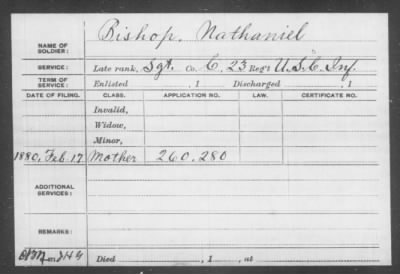 NAME OF SOLDIER: Bishop, Nathaniel
SERVICE: Late rank, Sgt. Co. C, 23 Reg't U.S.C. Inf.
TERM OF SERVICE: Enlisted , 1 Discharged , 1
DATE OF FILING. CLASS. APPLICATION NO. LAW. CERTIFICATE NO.
Invalid,
Widow,
Minor,
1880, Feb. 17 Mother 260.280
ADDITIONAL SERVICES:
REMARKS:
Died , 1 , at